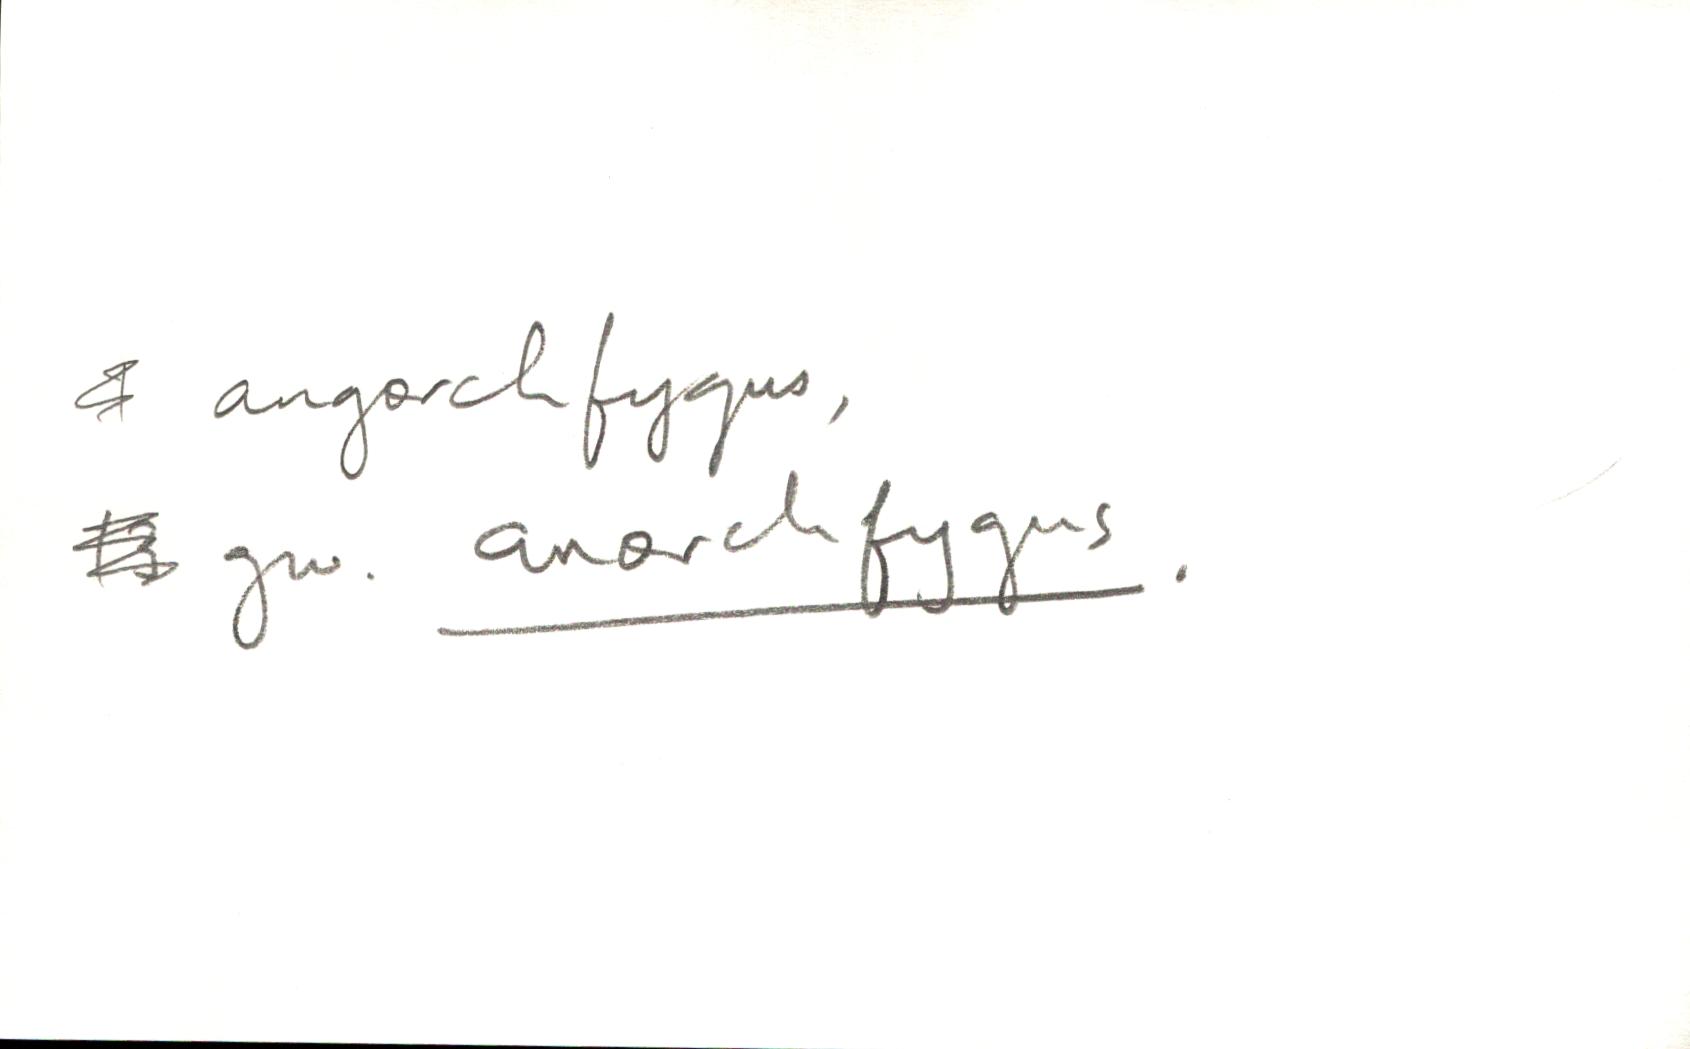 angorchfygus,
gw. anorchfygus.